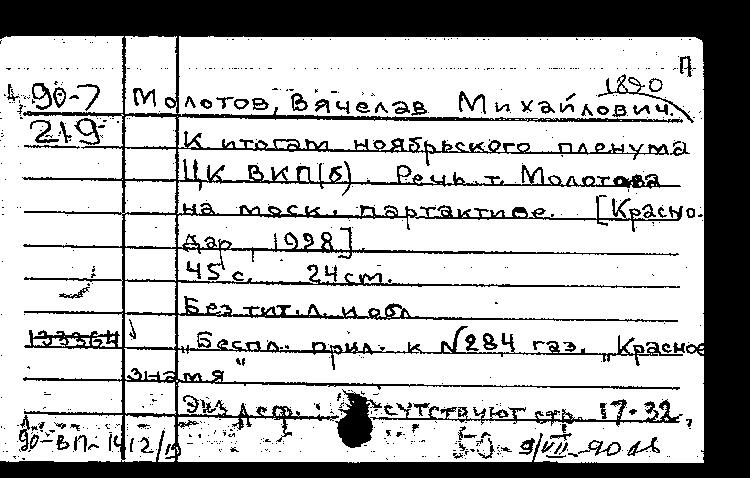 П
1890
90-7 Молотов, Вячеслав Михайлович.
219
К итогам ноябрьского пленума
ЦК ВКП(б). Речь т. Молотова
на моск. партактиве. [Красно-
дар, 1928].
45 с. 24 см.
Без тит. л. и обл.
133364 „Беспл. прил. к №284 газ. „Красное
знамя“
Экз. деф.: отсутствуют стр. 17-32,
90-ВП-1412/19 50- 9/VII-90